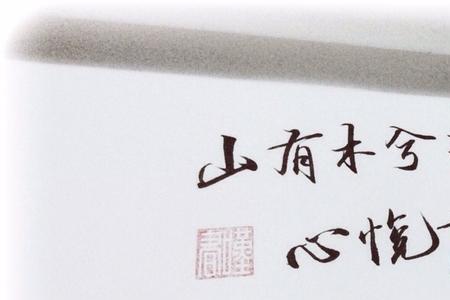 山有木兮
心悦